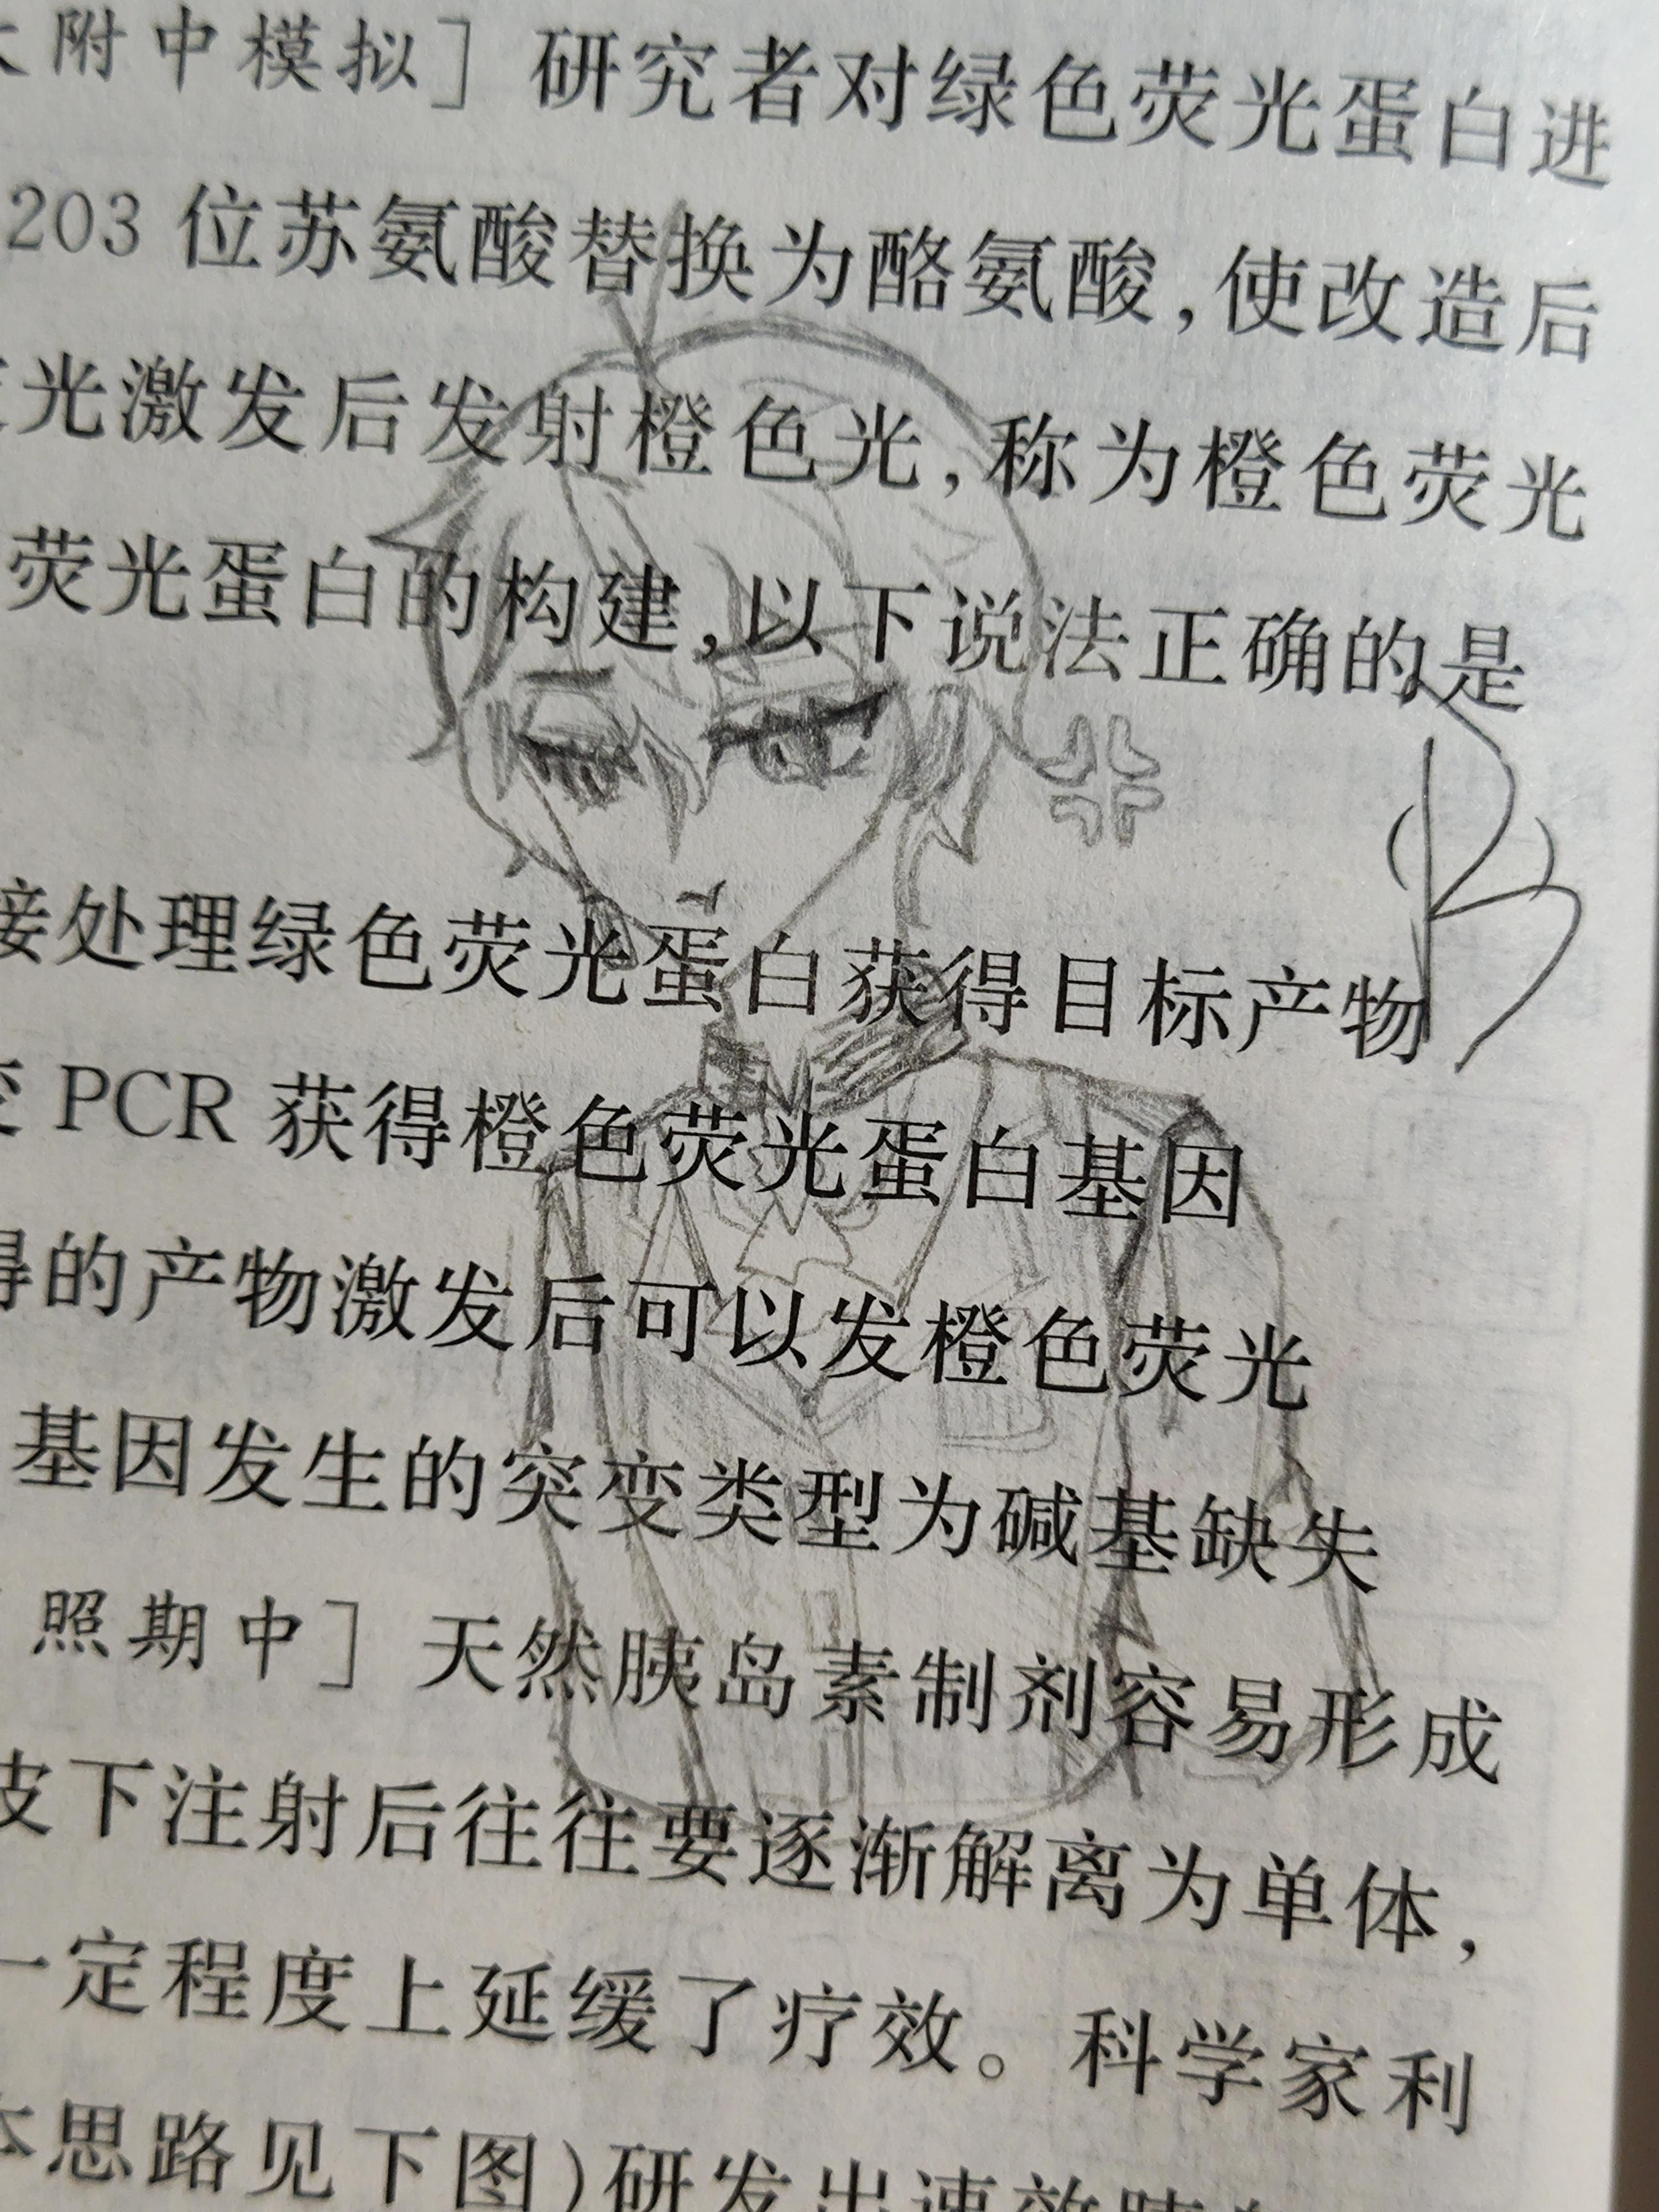 附中模拟］研究者对绿色荧光蛋白进
203 位苏氨酸替换为酪氨酸,使改造后
光激发后发射橙色光,称为橙色荧光
荧光蛋白的构建,以下说法正确的是
B
接处理绿色荧光蛋白获得目标产物
变 PCR 获得橙色荧光蛋白基因
得的产物激发后可以发橙色荧光
基因发生的突变类型为碱基缺失
照期中］天然胰岛素制剂容易形成
皮下注射后往往要逐渐解离为单体,
一定程度上延缓了疗效。科学家利
本思路见下图)研发出速效胰